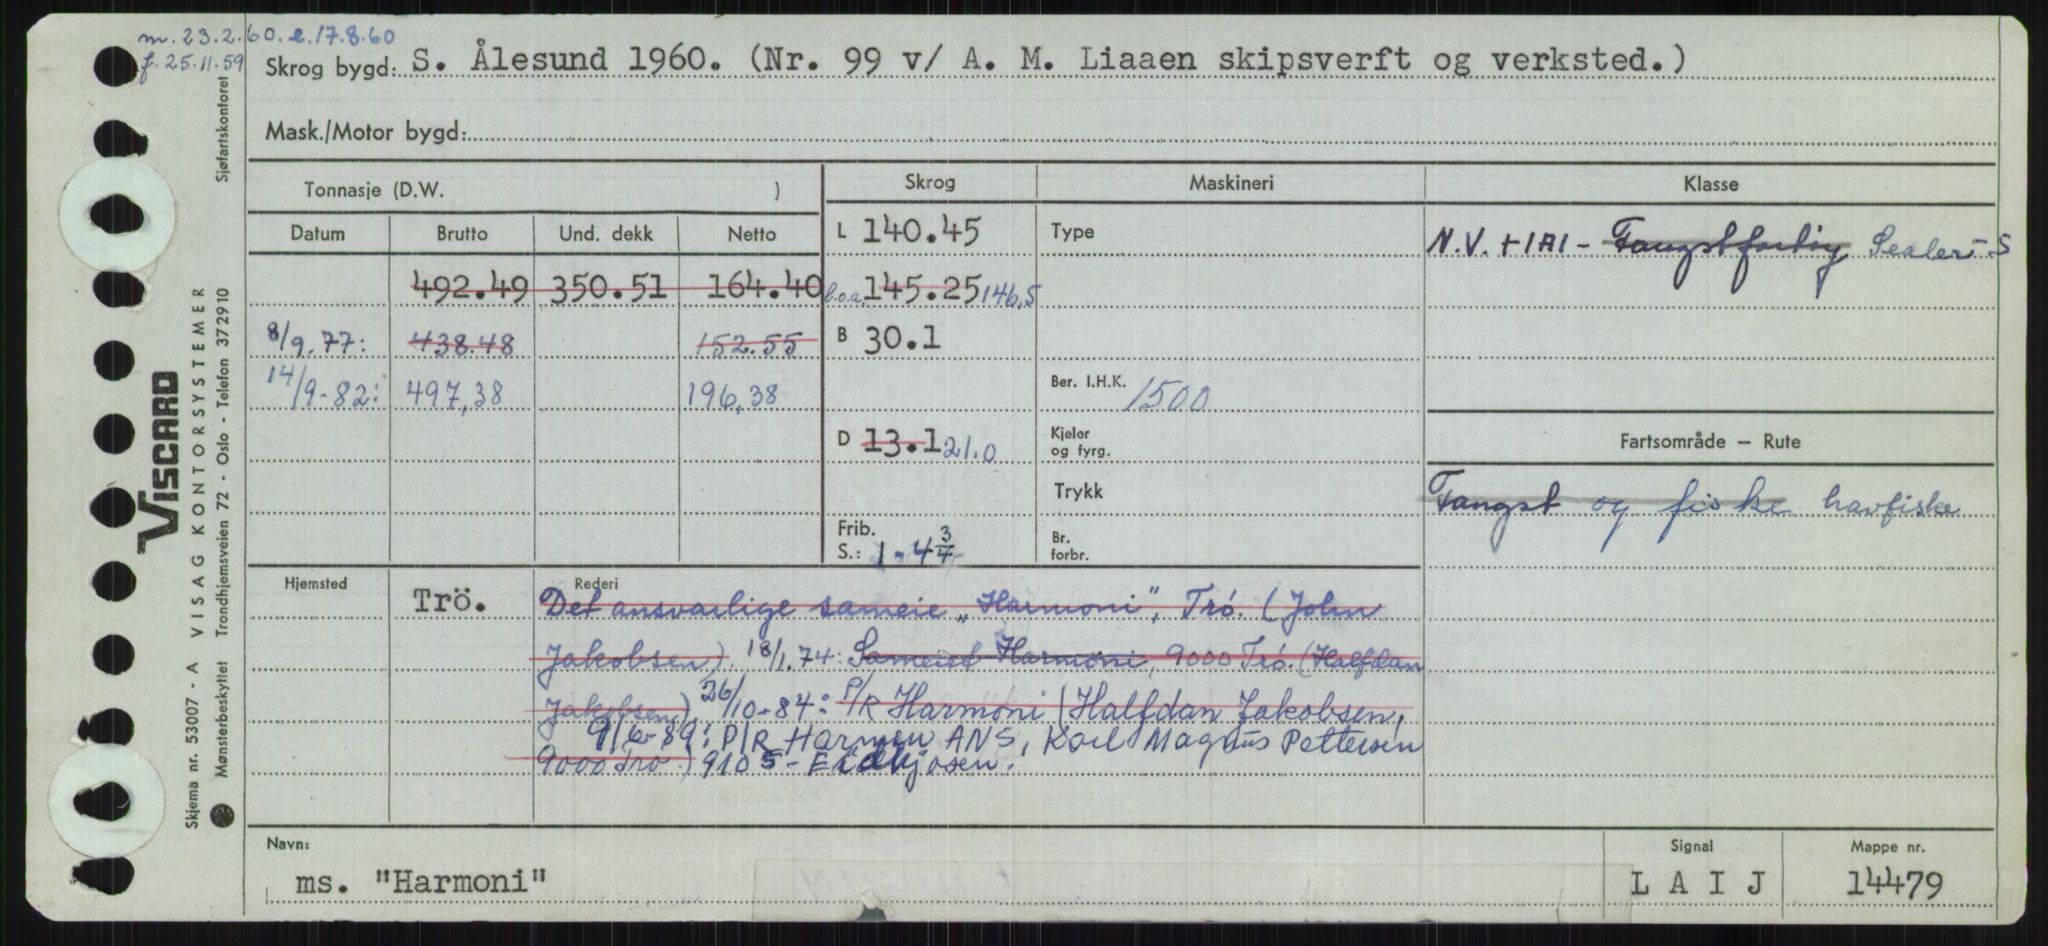 m. 23.2.60. e. 17.8.60
f. 25.11.59
Skrog bygd: S. Ålesund 1960. (Nr. 99 v/ A. M. Liaaen skipsverft og verksted.)
Mask./Motor bygd:
Tonnasje (D.W. )
Skrog
Maskineri
Klasse
Datum Brutto Und. dekk Netto
L 140.45
Type
N.V. + 1A1 - Fangstfartøy Sealer - S
492.49 350.51 164.40
l.o.a. 145.25 146,5
8/9.77: 438.48 152.55
B 30.1
14/9-82: 497,38 196,38
Ber. I.H.K. 1500
D 13.1 21.0
Kjeler
og fyrg.
Fartsområde — Rute
Trykk
Fangst og fiske havfiske
Frib.
S.: 1-4 3/4
Br.
forbr.
Hjemsted
Trö.
Rederi
Det ansvarlige sameie "Harmoni", Trö. (John
Jakobsen). 18/1.74: Sameiet Harmoni, 9000 Trö. (Halfdan
Jakobsen) 26/10-84: P/R Harmoni (Halfdan Jakobsen,
9/6-89: P/R Harmen ANS, Karl Magnus Pettersen
9000 Trö.) 9105 - Eidkjosen.
Navn:
ms. "Harmoni"
Signal
L A I J
Mappe nr.
14479
VISCARD
Skjema nr. 53007 - A VISAG KONTORSYSTEMER
Mønsterbeskyttet Trondhjemsveien 72 - Oslo - Telefon 37 29 10
Sjøfartskontoret